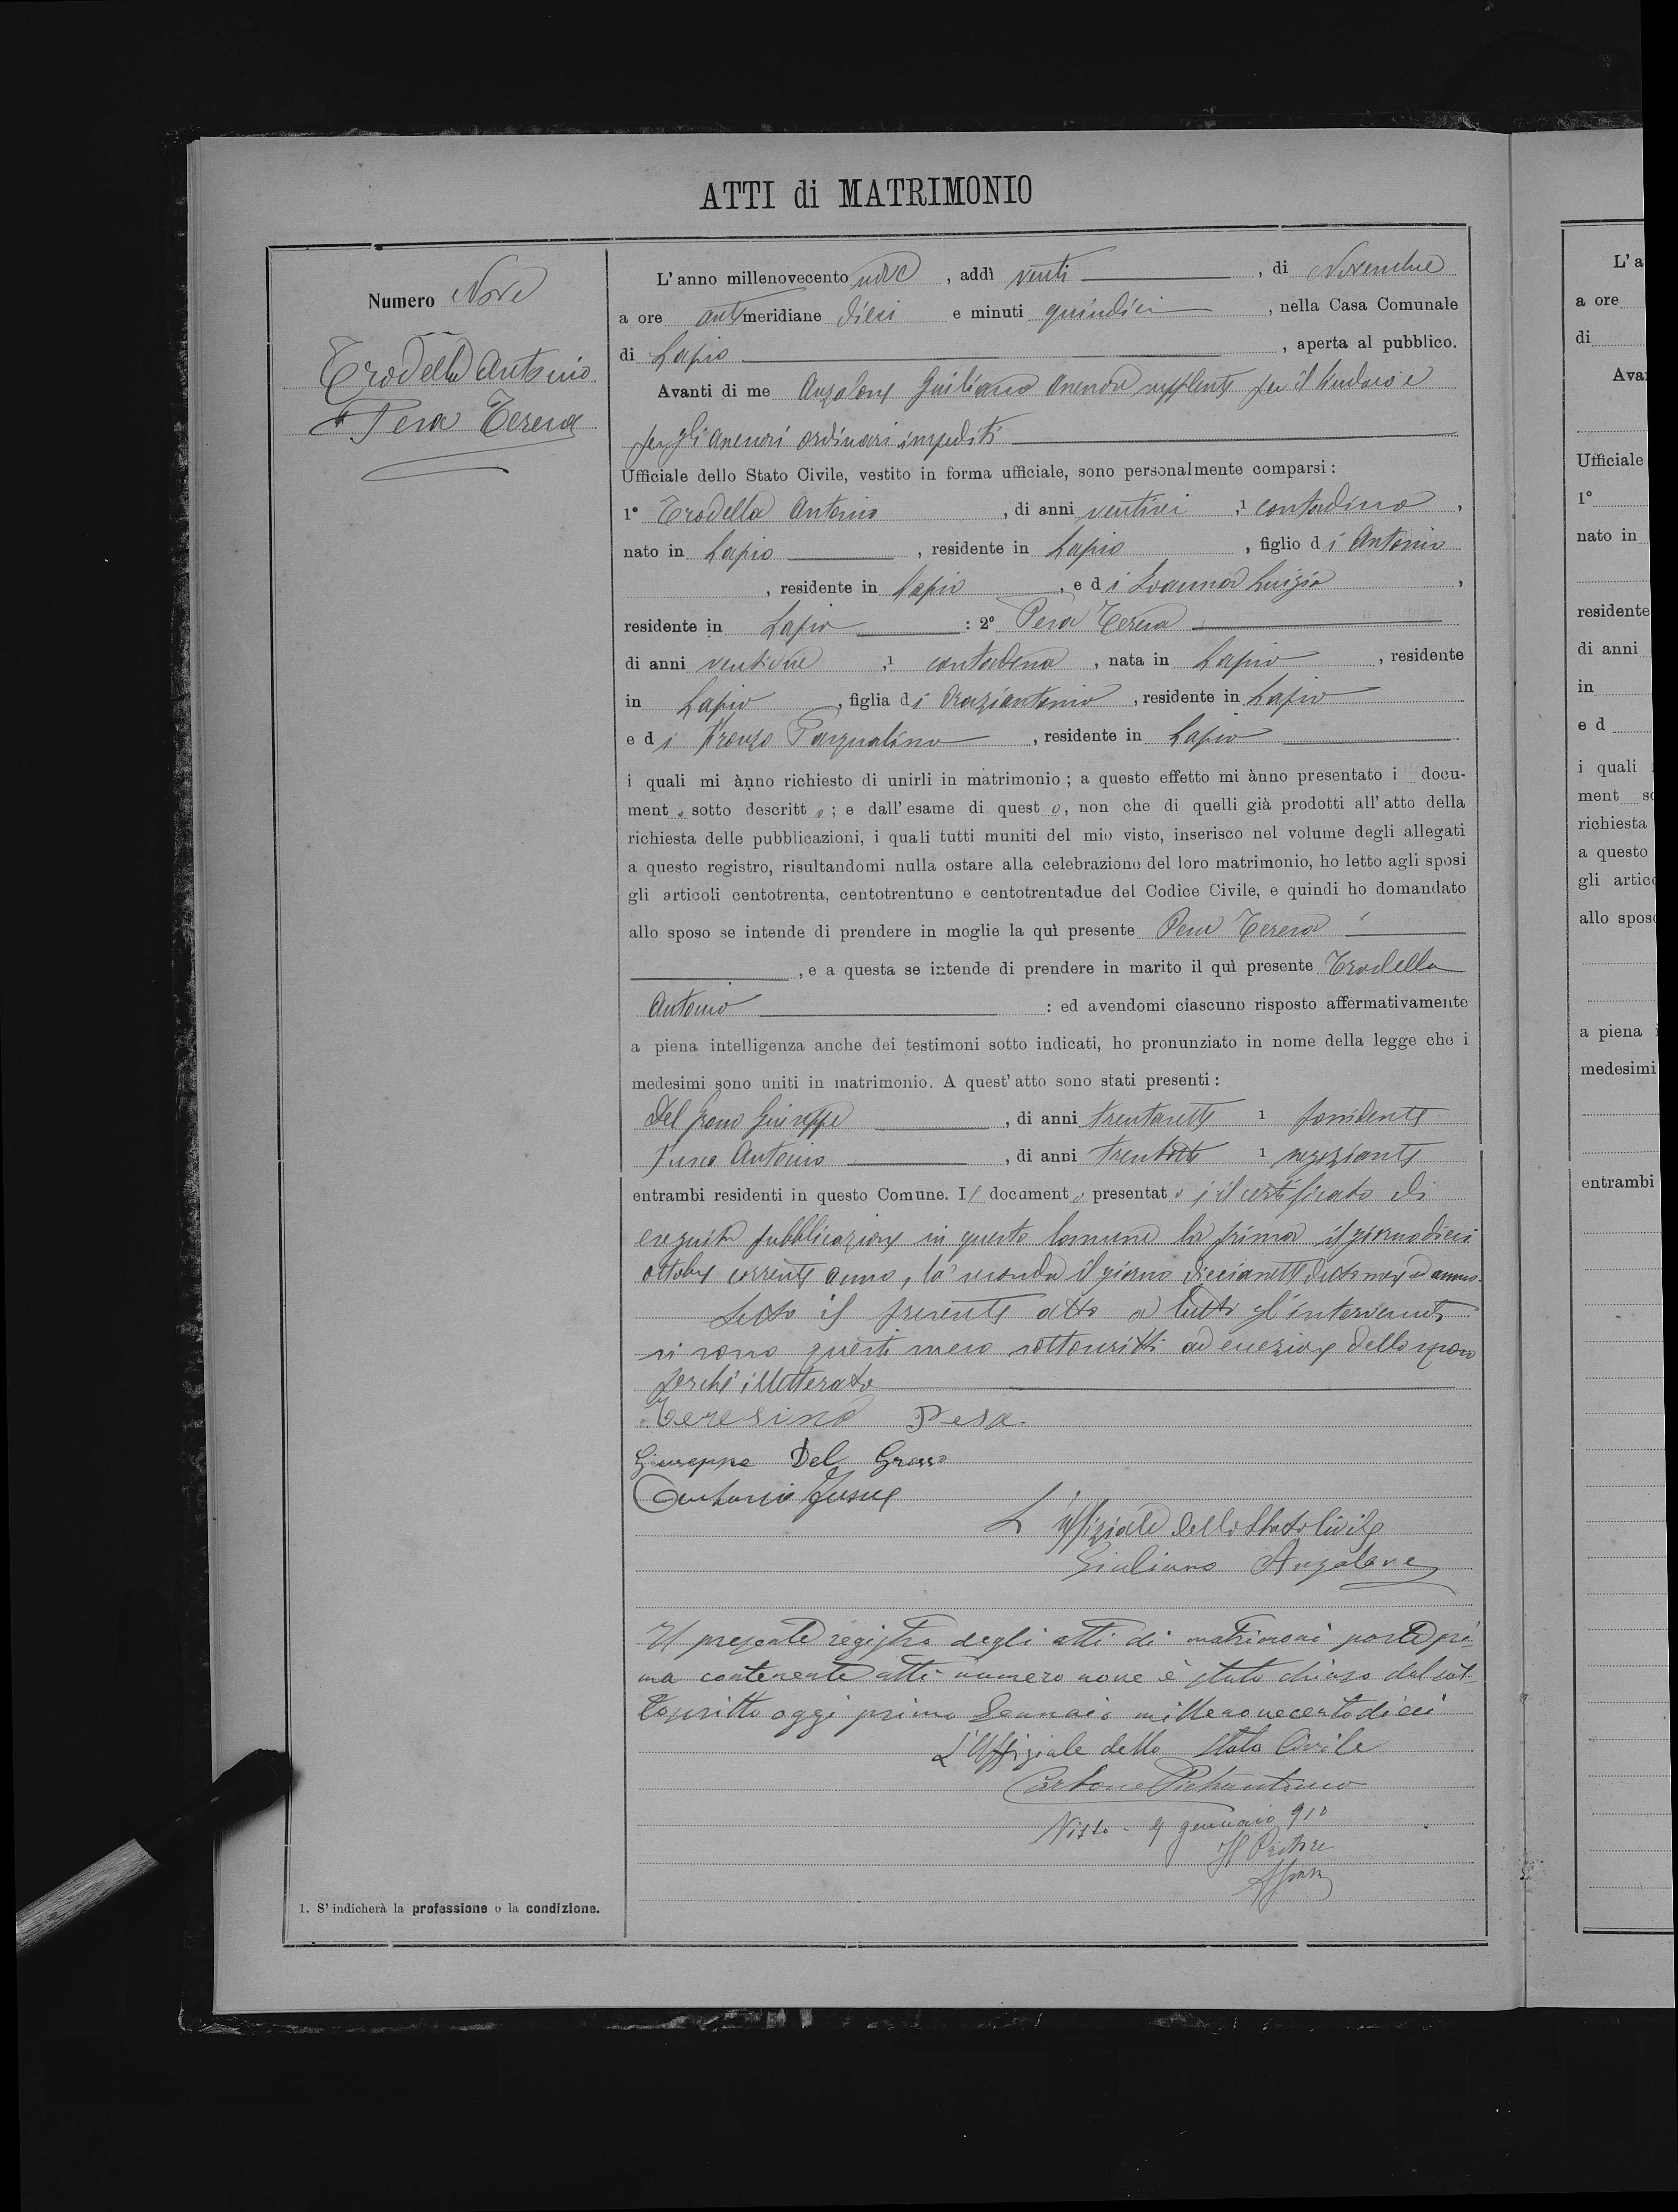 ATTI di MATRIMONIO
Numero Nove
Trodella Antonio
e Pesa Teresa
1. S' indicherà la professione o la condizione.
L' anno millenovecento nove, addì venti, di Novembre
a ore antimeridiane dieci e minuti quindici, nella Casa Comunale
di Lapio, aperta al pubblico.
Avanti di me Anzalone Giuliano Assessore supplente per il Sindaco e
per gli assessori ordinari impediti
Ufficiale dello Stato Civile, vestito in forma ufficiale, sono personalmente comparsi:
1° Trodella Antonio, di anni ventisei, 1 contadino,
nato in Lapio, residente in Lapio, figlio di Antonio
, residente in Lapio, e di Luigia,
residente in Lapio: 2° Pesa Teresa
di anni ventidue, 1 contadina, nata in Lapio, residente
in Lapio, figlia di Oraziantonio, residente in Lapio
e di Pasqualina, residente in Lapio
i quali mi ànno richiesto di unirli in matrimonio; a questo effetto mi ànno presentato i docu-
mento sotto descritto; e dall' esame di questo, non che di quelli già prodotti all' atto della
richiesta delle pubblicazioni, i quali tutti muniti del mio visto, inserisco nel volume degli allegati
a questo registro, risultandomi nulla ostare alla celebrazione del loro matrimonio, ho letto agli sposi
gli articoli centotrenta, centotrentuno e centotrentadue del Codice Civile, e quindi ho domandato
allo sposo se intende di prendere in moglie la quì presente Pesa Teresa
, e a questa se intende di prendere in marito il quì presente Trodella
Antonio: ed avendomi ciascuno risposto affermativamente
a piena intelligenza anche dei testimoni sotto indicati, ho pronunziato in nome della legge che i
medesimi sono uniti in matrimonio. A quest' atto sono stati presenti:
Del Grosso Giuseppe, di anni trentasette 1 possidente
Fusco Antonio, di anni trentotto 1 negoziante
entrambi residenti in questo Comune. Il documento presentato è il certificato di
eseguita pubblicazione in questo Comune la prima il giorno dieci
ottobre corrente anno, la seconda il giorno diciassette detto mese ed anno.
Letto il presente atto a tutti gl'intervenuti
si sono questi meco sottoscritti ad eccezione dello sposo
perchè illetterato
Teresina Pesa.
Giuseppe Del Grosso
Antonio Fusco
L'uffiziale dello Stato Civile
Giuliano Anzalone
Il presente registro degli atti di matrimoni parte pri
ma contenente atti numero nove è stato chiuso dal sot-
toscritto oggi primo Gennaio millenovecentodieci
L'Uffiziale dello Stato Civile
Carbone Pietrantonio
Visto - 9 gennaio 910
Il Pretore
L' a
a ore
di
Ava
Ufficiale
1°
nato in
residente
di anni
in
e d
i quali
ment so
richiesta
a questo
gli artico
allo sposo
a piena i
medesimi
entrambi